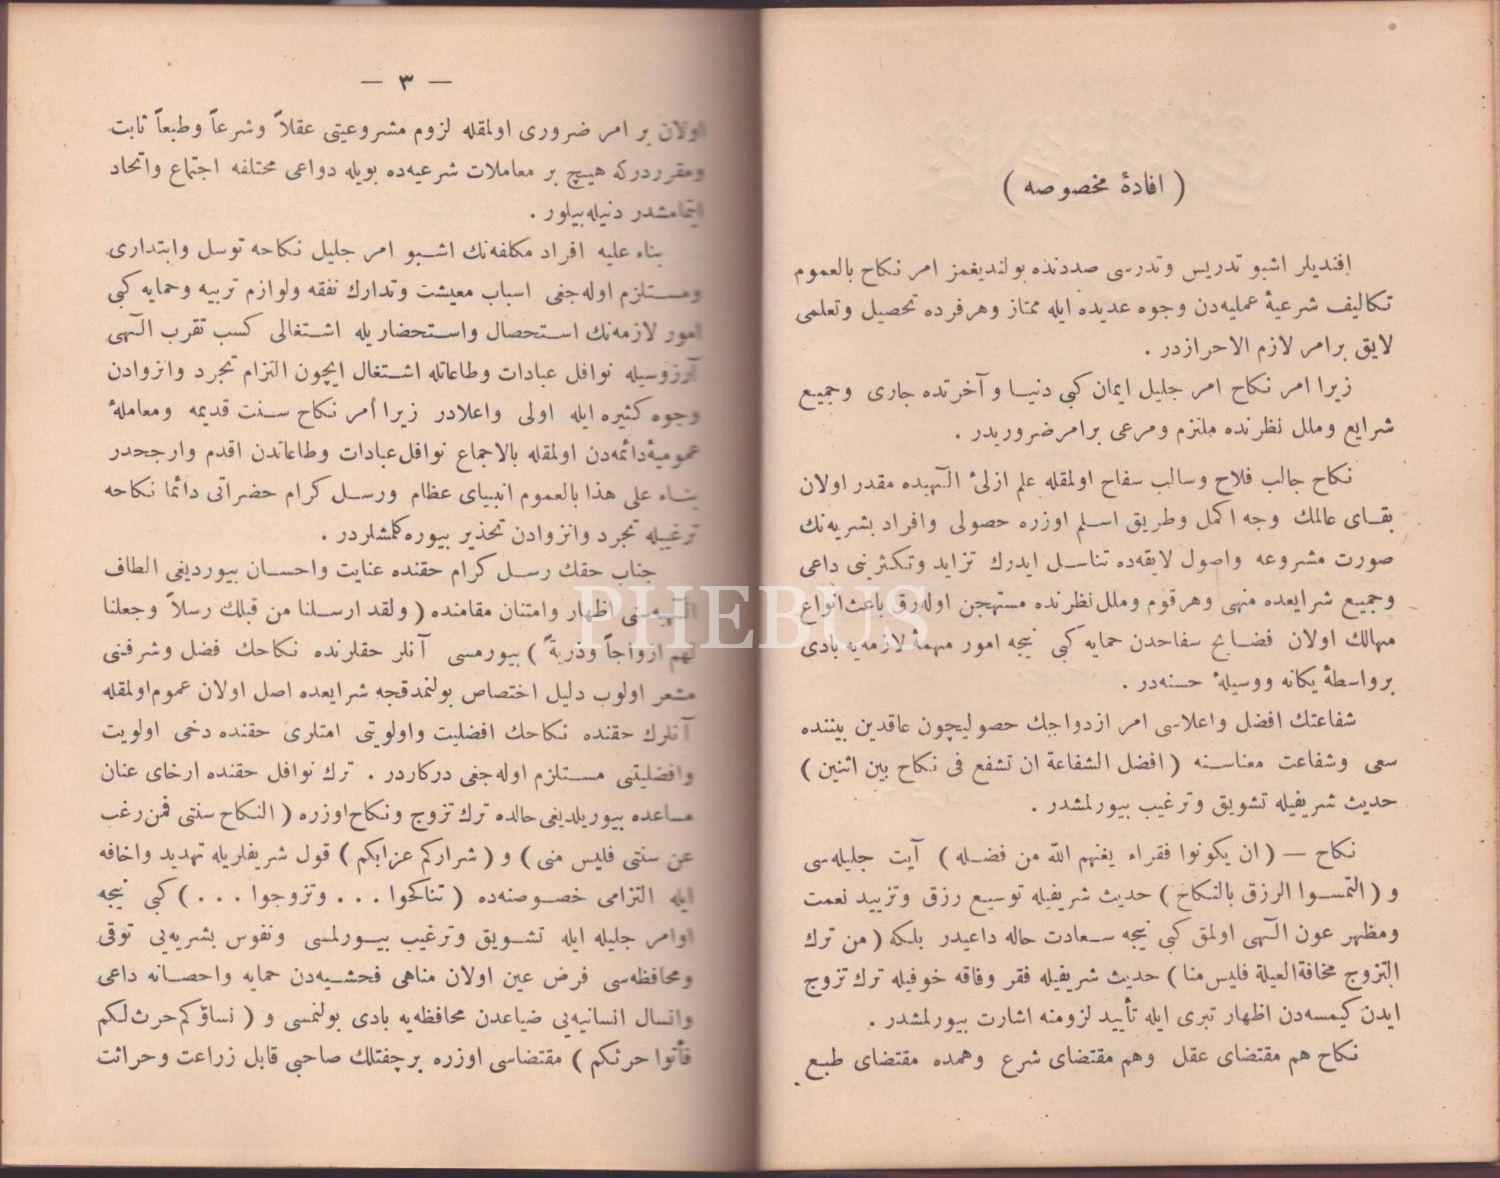 ( افادهٔ مخصوصه )
افنديلر اشبو تدريس وتدرسى صددنده بولنديغمز امر نكاح بالعموم
تكاليف شرعيهٔ عمليه‌دن وجوه عديده ايله ممتاز وهرفرده تحصيل وتعلمى
لايق برامر لازم الاحرازدر .
زيرا امر نكاح امر جليل ايمان كبى دنيا و آخرتده جارى وجميع
شرايع وملل نظرنده ملتزم ومرعى برامرضروريدر .
نكاح جالب فلاح وسالب سفاح اولمقله علم ازلئ الٓهيده مقدر اولان
بقاى عالمك وجه اكمل وطريق اسلم اوزره حصولى وافراد بشريه‌نك
صورت مشروعه واصول لايقه‌ده تناسل ايدرك تزايد وتكثرينى داعى
وجميع شرايعده منهى وهرقوم وملل‌نظرنده مستهجن اوله‌رق باعث‌انواع
مهالك اولان فضايح سفاحدن حمايه كبى نيجه امور مهمهٔ لازمه‌يه بادى
برواسطهٔ يكانه ووسيلهٔ حسنه‌در .
شفاعتك افضل واعلاسى امر ازدواجك حصوليچون عاقدين بيننده
سعى وشفاعت معناسنه ( افضل الشفاعة ان تشفع فى نكاح بين اثنين )
حديث شريفيله تشويق وترغيب بيورلمشدر .
نكاح — ( ان يكونوا فقراء يغنهم الله من فضله ) آيت جليله‌سى
و ( التمسوا الرزق بالنكاح ) حديث شريفيله توسيع رزق وتزييد نعمت
ومظهر عون الٓهى اولمق كبى نيجه سعادت حاله داعيدر بلكه ( من ترك
التزوج مخافةالعيلة فليس منا ) حديث شريفيله فقر وفاقه خوفيله ترك تزوج
ايدن كيمسه‌دن اظهار تبرى ايله تأييد لزومنه اشارت بيورلمشدر .
نكاح هم مقتضاى عقل وهم مقتضاى شرع وهمده مقتضاى طبع
— ٣ —
اولان بر امر ضرورى اولمقله لزوم مشروعيتى عقلاً وشرعاً وطبعاً ثابت
ومقرردركه هيچ بر معاملات شرعيه‌ده بويله دواعى مختلفه اجتماع واتحاد
ايتمامشدر دنيله‌بيلور .
بناء عليه افراد مكلفه‌نك اشبو امر جليل نكاحه توسل وابتدارى
ومستلزم اوله‌جغى اسباب معيشت وتدارك نفقه ولوازم تربيه وحمايه كبى
امور لازمه‌نك استحصال واستحضاريله اشتغالى كسب تقرب الٓهى
آرزوسيله نوافل عبادات وطاعاتله اشتغال ايچون التزام تجرد وانزوادن
وجوه كثيره ايله اولى واعلادر زيرا أمر نكاح سنت قديمه ومعاملهٔ
عموميهٔ‌دائمه‌دن اولمقله بالاجماع نوافل‌عبادات وطاعاتدن اقدم وارجحدر
بناء على هذا بالعموم انبياى عظام ورسل كرام حضراتى دائما نكاحه
ترغيبله تجرد وانزوادن تحذير بيوره‌كلمشلردر .
جناب حقك رسل كرام حقنده عنايت واحسان بيورديغى الطاف
الٓهيه‌نى اظهار وامتنان مقامنده ( ولقد ارسلنا من قبلك رسلاً وجعلنا
لهم ازواجاً وذريةً ) بيورمسى آنلر حقلرنده نكاحك فضل وشرفنى
مشعر اولوب دليل اختصاص بولنمدقجه شرايعده اصل اولان عموم‌اولمقله
آنلرك حقنده نكاحك افضليت واولويتى امتلرى حقنده دخى اولويت
وافضليتى مستلزم اوله‌جغى دركاردر . ترك نوافل حقنده ارخاى عنان
مساعده بيوريلديغى‌حالده ترك تزوج ونكاح‌اوزره ( النكاح سنتى فمن‌رغب
عن سنتى فليس منى ) و ( شراركم عزابكم ) قول شريفلريله تهديد واخافه
ايله التزامى خصوصنه‌ده ( تناكحوا . . . وتزوجوا . . . ) كبى نيجه
اوامر جليله ايله تشويق وترغيب بيورلمسى ونفوس بشريه‌يى توقى
ومحافظه‌سى فرض عين اولان مناهى فحشيه‌دن حمايه واحصانه داعى
وانسال انسانيه‌يى ضياعدن محافظه‌يه بادى بولنمسى و ( نساؤكم‌حرث‌لكم
فأتوا حرثكم ) مقتضاسى اوزره برچفتلك صاحبى قابل زراعت وحراثت
PHEBUS